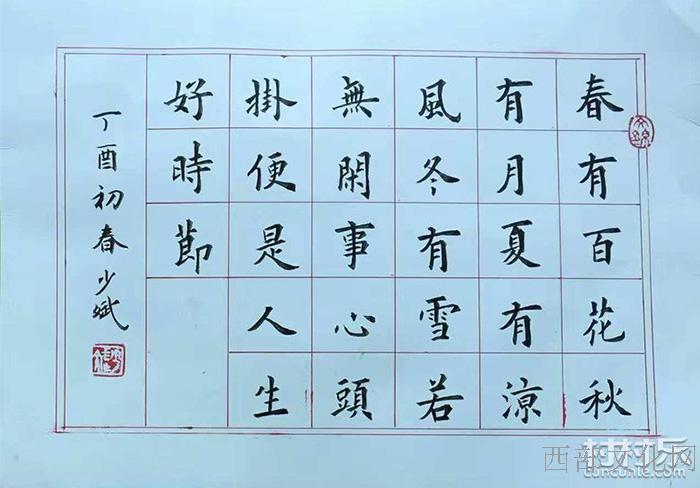 春有百花秋
有月夏有涼
風冬有雪若
無閑事心頭
掛便是人生
好時節
丁酉初春少斌
西部文化网
村村乐
cuncunle.com